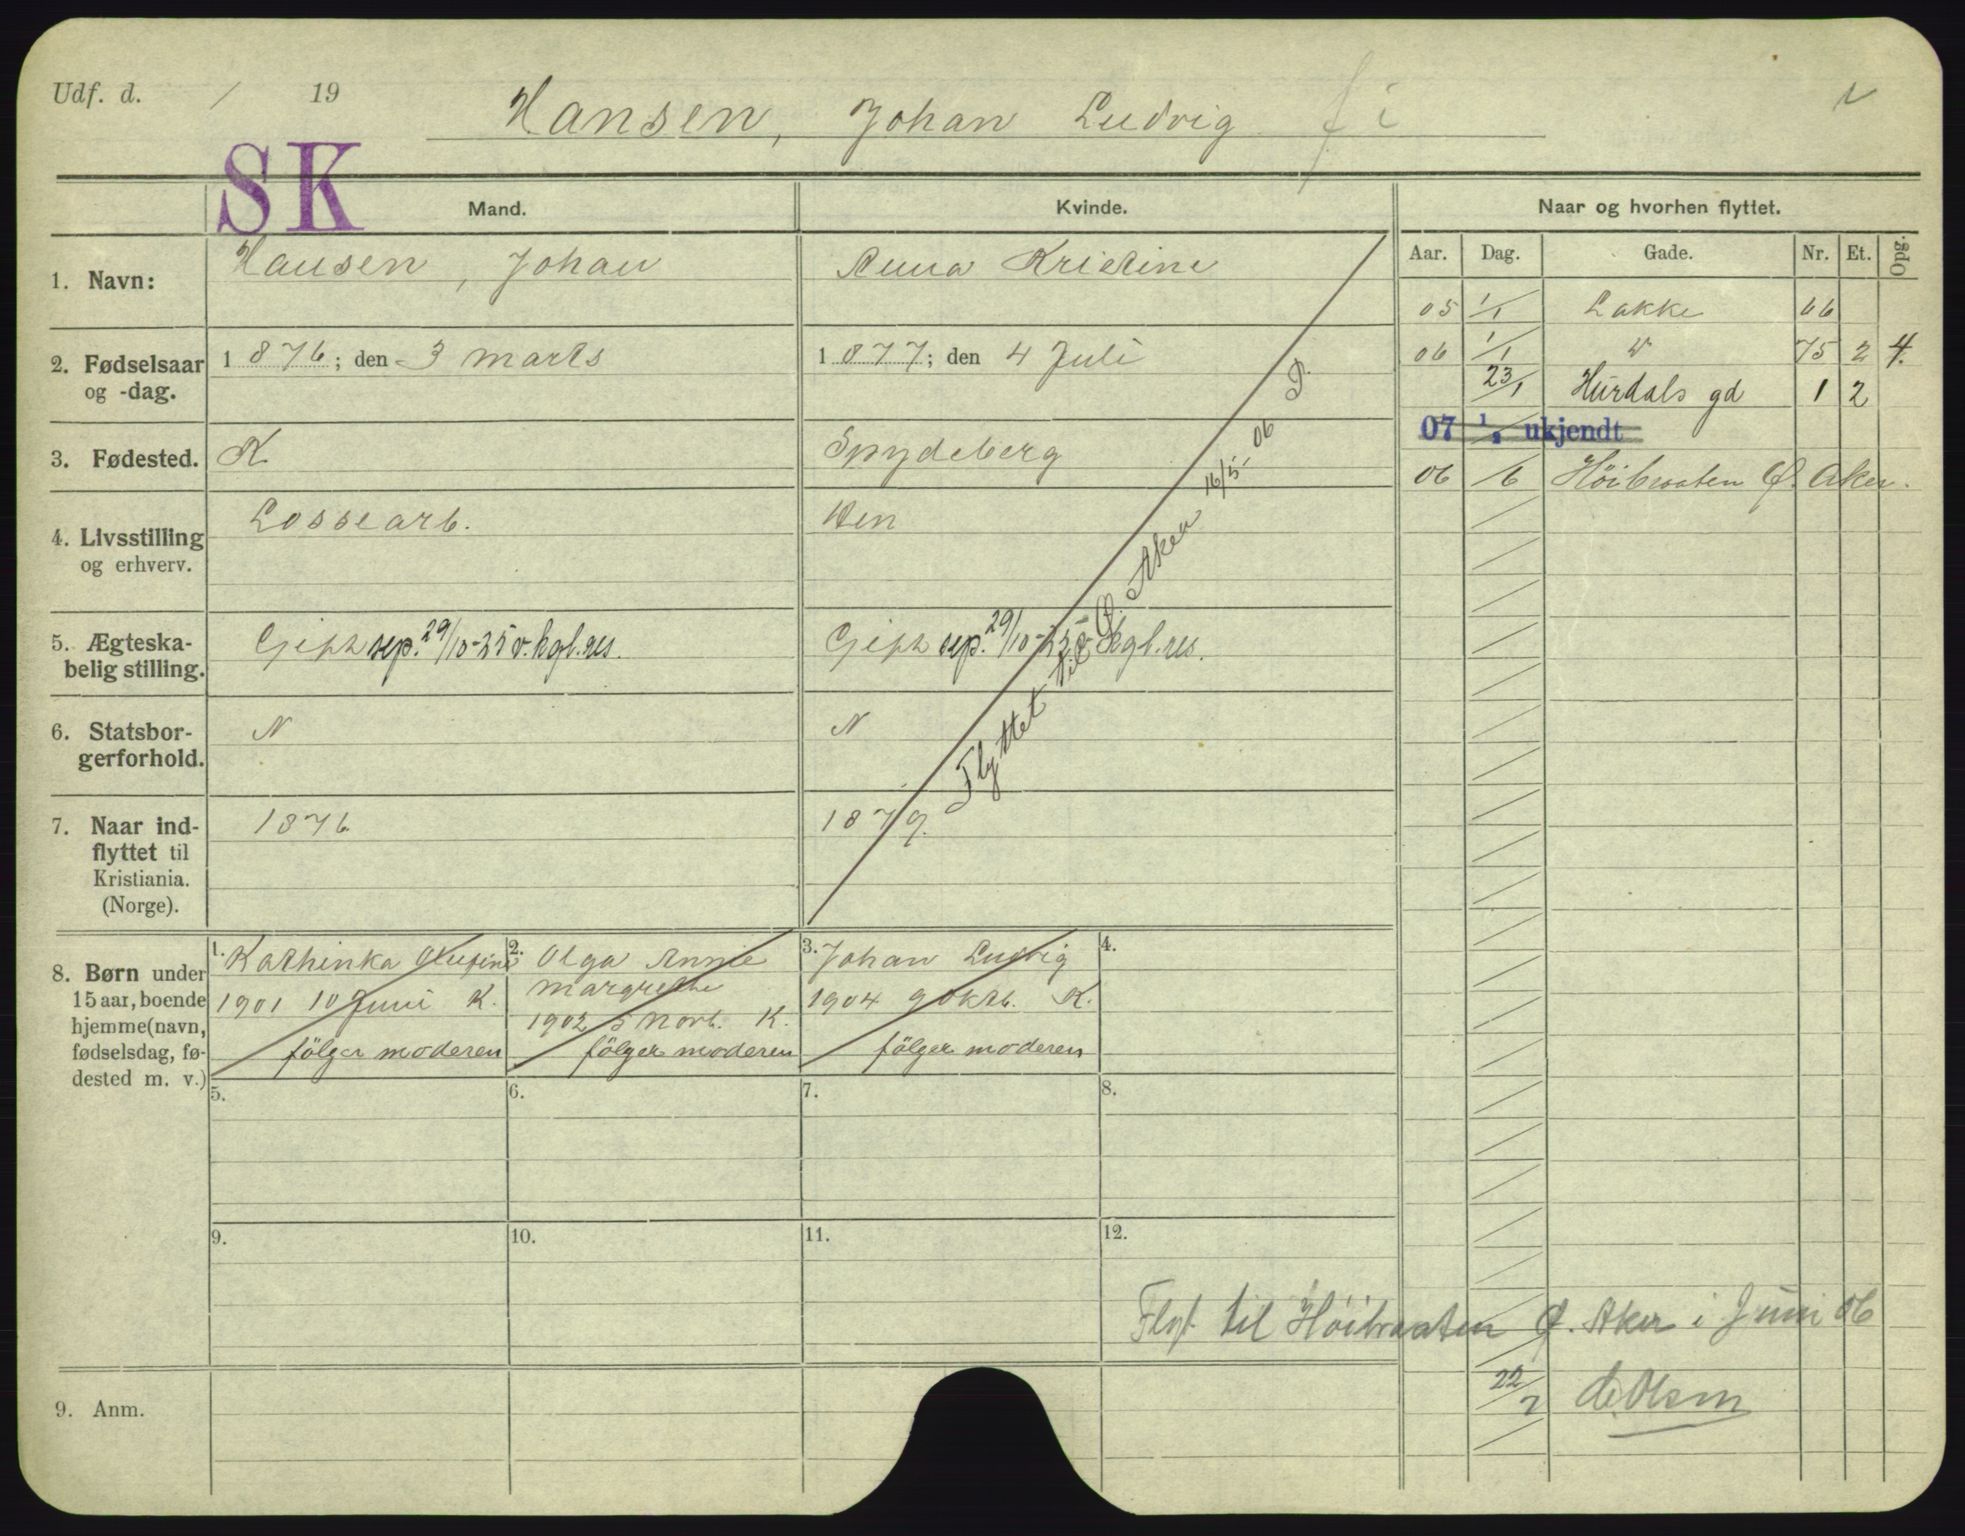 Udf. d. / 19
Hansen, Johan Ludvig
SK
Mand.
Kvinde.
Naar og hvorhen flyttet.
Aar. Dag. Gade. Nr. Et. Opg.
1. Navn:
Hansen, Johan
Anna Kristine
2. Fødselsaar
og -dag.
1876; den 3 marts
1877; den 4 Juli
3. Fødested.
K
Spydeberg
4. Livsstilling
og erhverv.
Lossearb.
5. Ægteska-
belig stilling.
Gift sep. 29/10-25 v. kgl. res.
Gift sep. 29/10-25 v. kgl. res.
6. Statsbor-
gerforhold.
N
N
7. Naar ind-
flyttet til
Kristiania.
(Norge).
1876
1879.
Flyttet til Ø. Aker 16/5-06 P.
05 1/1 Lakke 66
06 1/1 " 75 2 4.
23/1 Hurdals gd 1 2
07 1/2 ukjendt
06 /6 Höibraaten Ø. Aker.
8. Børn under
15 aar, boende
hjemme (navn,
fødselsdag, fø-
dested m. v.)
1. Kathinka Olufine
1901 10 Juni K.
fölger moderen
2. Olga Annie
Margrethe
1902 5 Novb. K.
fölger moderen
3. Johan Ludvig
1904 9 Oktb. K.
fölger moderen
4.
5.
6.
7.
8.
9.
10.
11.
12.
Flyt. til Höibraaten Ø. Aker i Juni 06
22/2
9. Anm.